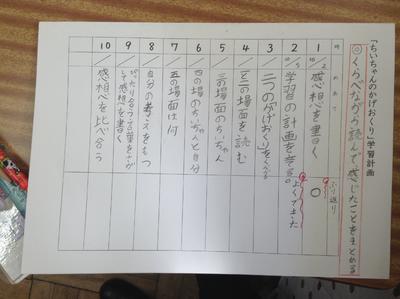 「ちいちゃんのかげおくり」学習計画
◎くらべながら読んで感じたことをまとめる
時 めあて ふり返り
1 10/2 感想を書く ○
2 10/5 学習の計画を考える。 よくできた
3 / 二つの「かげおくり」をくらべる
4 / 一と二の場面を読む
5 / 三の場面のちいちゃん
6 / 四の場面のちいちゃんと自分
7 / 五の場面は何
8 / 自分の考えをもつ
9 / ぴったり合う言葉をさがして感想を書く
10 / 感想を比べ合う